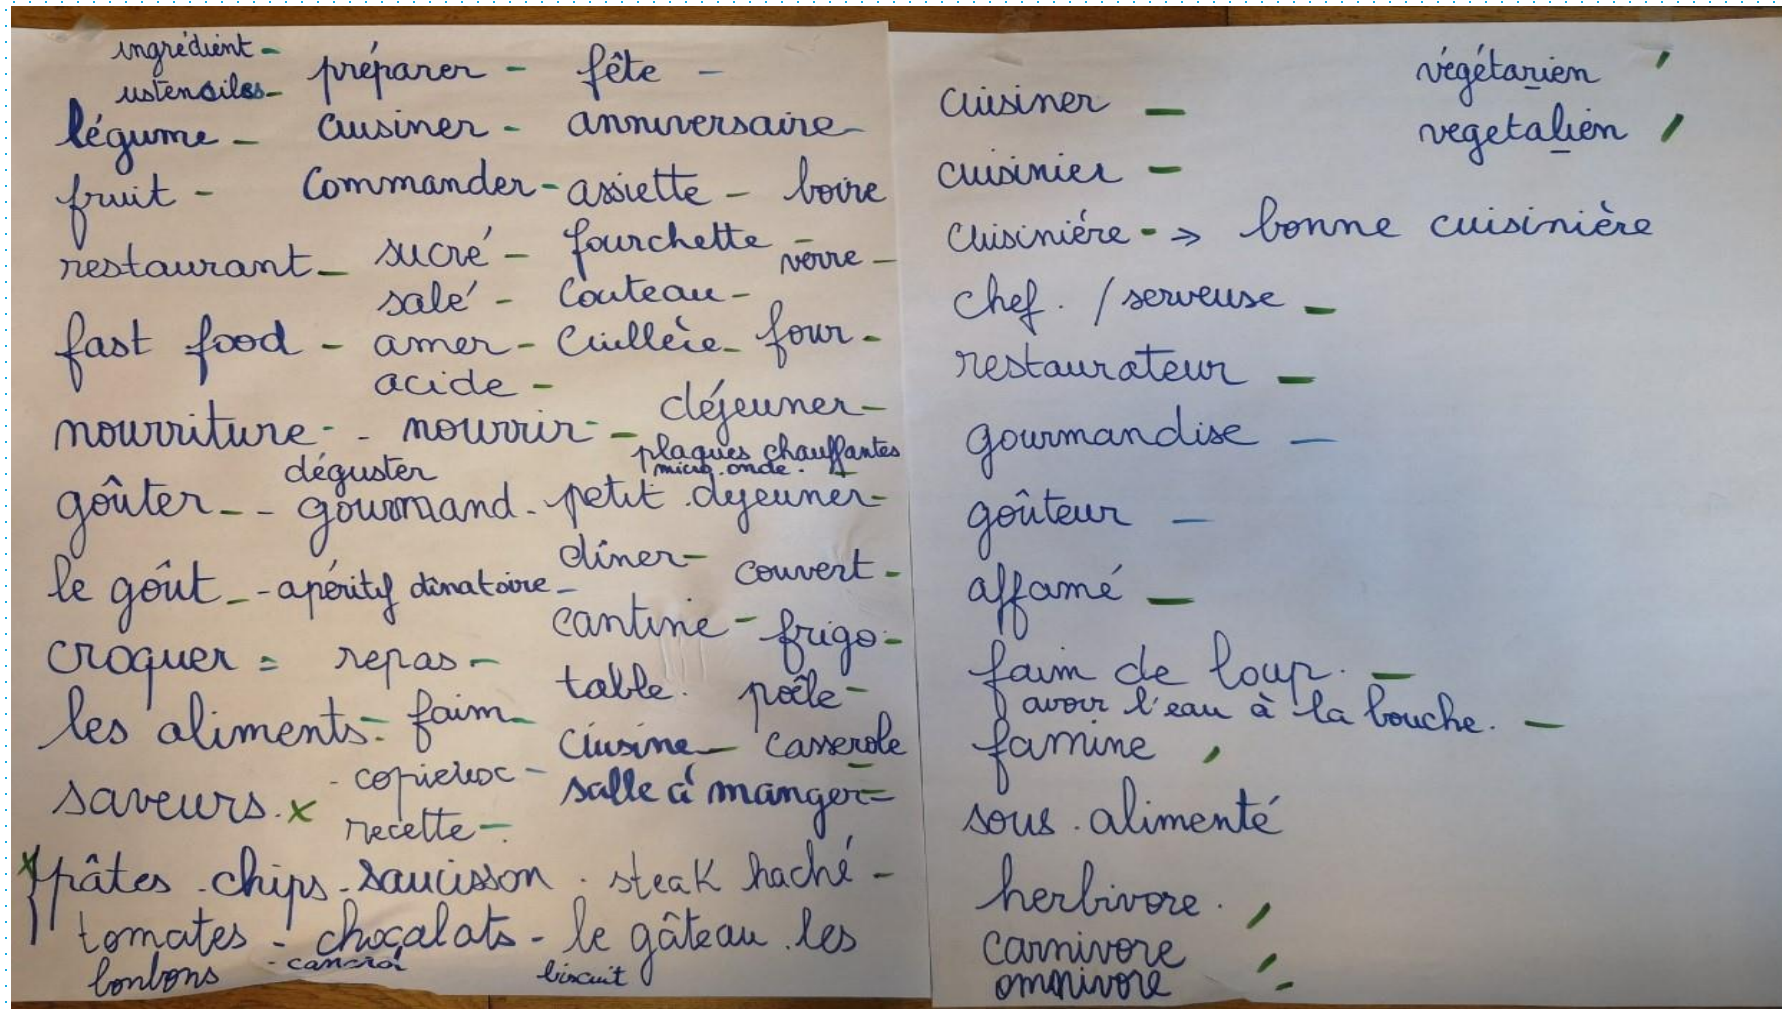 ingrédient - préparer - fête -
ustensiles -
légume - cuisiner - anniversaire -
fruit - Commander - assiette - boire
restaurant - sucré - fourchette - verre -
salé - Couteau -
fast food - amer - Cuillère - four -
acide -
nourriture - - nourrir - déjeuner -
plaques chauffantes
déguster micro.onde. -
goûter - - gourmand - petit déjeuner -
le goût - - apéritif dinatoire - dîner - couvert -
cantine - frigo -
croquer = repas -
table. poêle -
les aliments - faim -
Cuisine - casserole
- copieux -
saveurs. x salle à manger =
recette -
x pâtes - chips - saucisson . steak haché -
tomates - chocalats - le gâteau . les
bonbons biscuit
végétarien
cuisiner -
vegetalien
cuisinier -
cuisiniére - → bonne cuisinière
chef. / serveuse -
restaurateur -
gourmandise -
goûteur -
affamé -
faim de loup. -
avoir l'eau à la bouche. -
famine
sous . alimenté
herbivore.
carnivore
omnivore